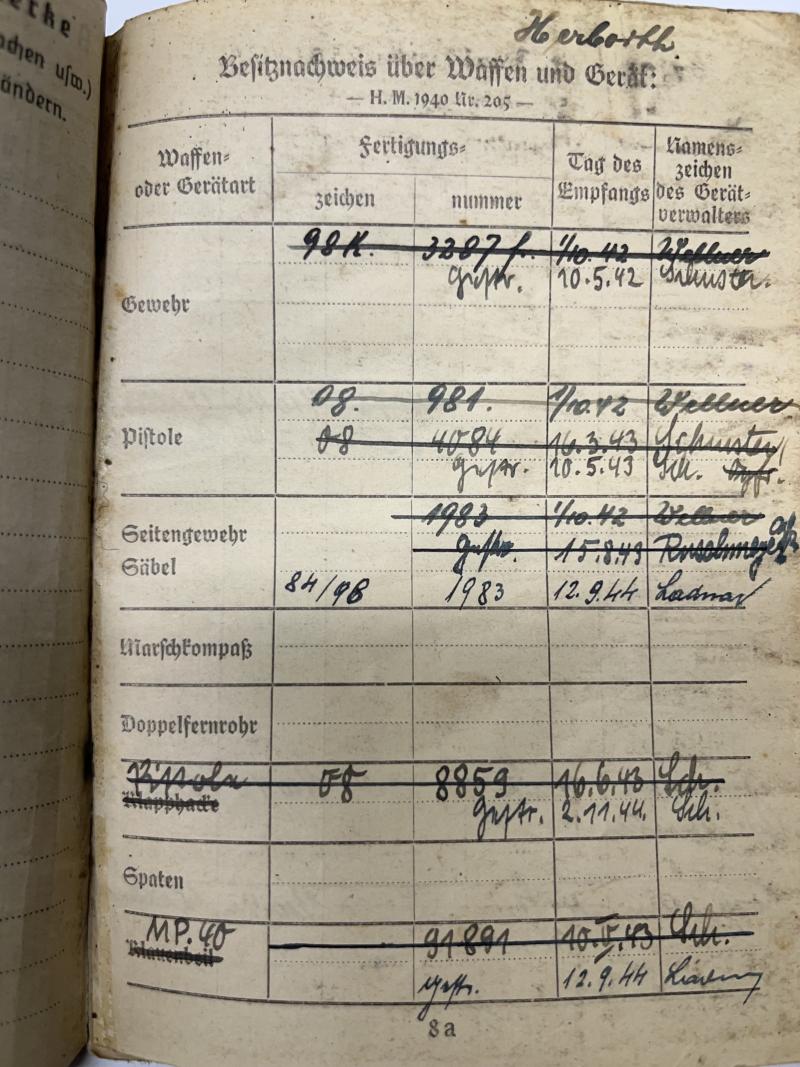 erke
ochen usw.)
ändern.
Herborth.
Besitznachweis über Waffen und Gerät:
— H. M. 1940 Nr. 205 —
Waffen- oder Gerätart
Fertigungs-
zeichen
nummer
Tag des Empfangs
Namens- zeichen des Gerät- verwalters
98K. 3287 f. 1/10.42 Wellner
Gestr. 10.5.42 Schuster.
Gewehr
08. 981. 1/10.42 Wellner
Pistole 08 4084 16.3.43 Schuster
Gestr. 10.5.43 Sch.
1983 1/10.42 Wellner
Seitengewehr Gestr. 15.8.43
Säbel
84/98 1983 12.9.44
Marschkompaß
Doppelfernrohr
Pistole 08 8859 16.6.43 Sch.
Klapphacke
Gestr. 2.11.44. Sch.
Spaten
MP.40 91891 10.V.43 Sch.
Gestr. 12.9.44
8a